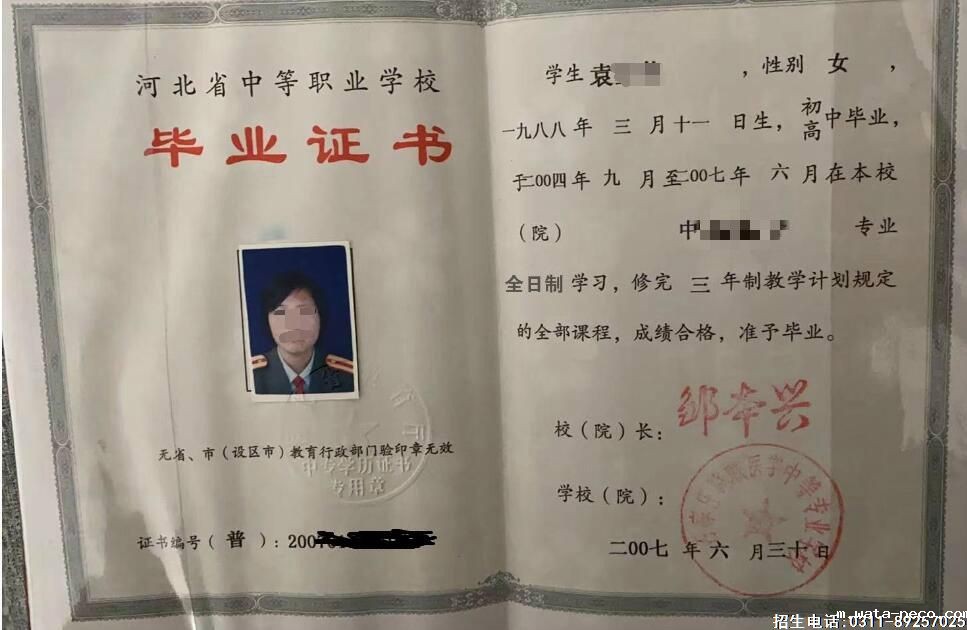 河北省中等职业学校
毕业证书
无省、市（设区市）教育行政部门验印章无效
中专学历证书
专用章
证书编号（普）：2007
学生 袁 ，性别 女 ，
一九八八年 三 月十一 日生，初
高中毕业，
于二00四年 九 月至二00七年 六 月在本校
（院） 中 专业
全日制学习，修完 三 年制教学计划规定
的全部课程，成绩合格，准予毕业。
校（院）长：邹本兴
学校（院）：
医学中等专业学校
二00七 年 六 月 三十 日
m.wata-peco.com
招生电话:0311-89257025